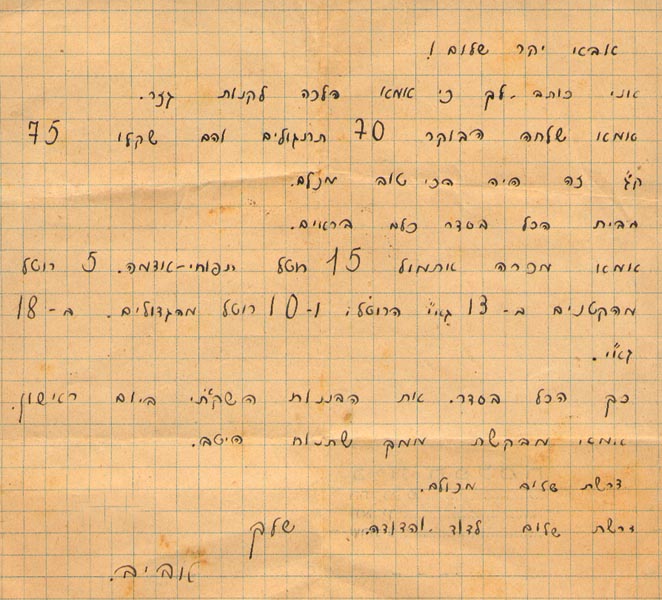 אבא יקר שלום!
אני כותב לך כי אמא הלכה לקנות גזר.
אמא שלחה הבוקר 70 תרנגולים והם שקלו 75
ק"ג זה היה הכי טוב מכלם.
מבית הכל בסדר כלם בריאים.
אמא מכרה אתמול 15 רוטל תפוחי-אדמה. 5 רוטל
מהקטנים ב-13 גא"י הרוטל, ו-10 רוטל מהגדולים. ב-18
גא"י.
כך הכל בסדר. את הבננות השקתי ביום ראישון.
אמא מבקשת ממך שתנוח היטב.
דרשת שלום מכולם.
דרשת שלום לדוד והדודה. שלך
אביב.